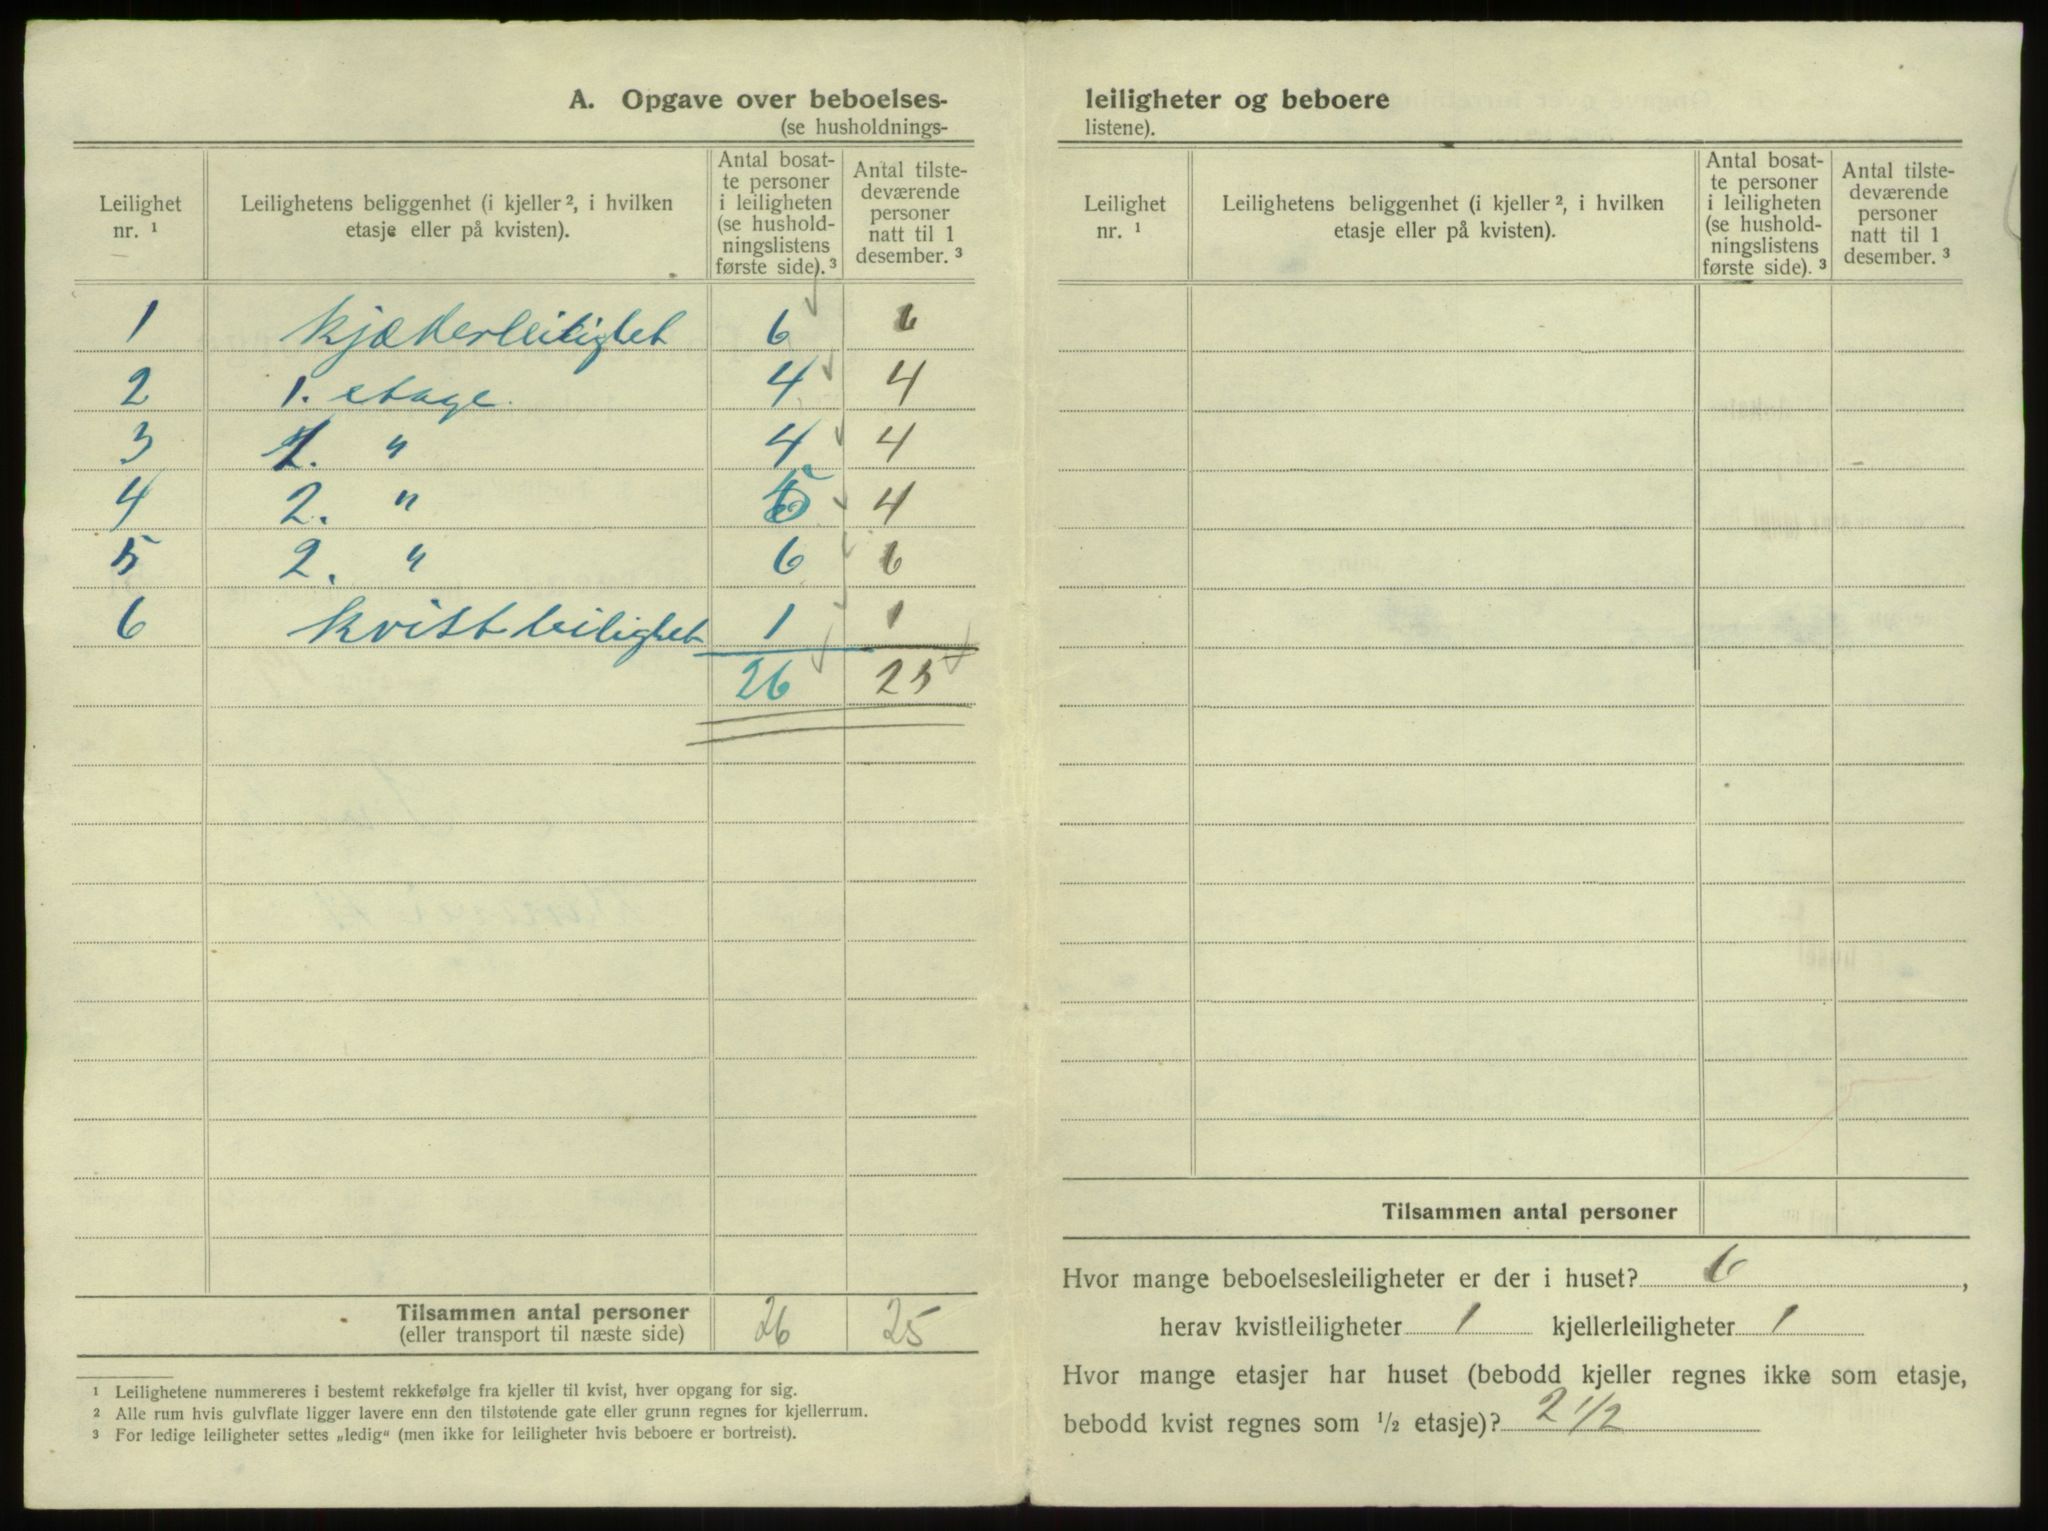 A. Opgave over beboelses-
(se husholdnings-
Leilighet nr. ¹
Leilighetens beliggenhet (i kjeller ², i hvilken etasje eller på kvisten).
Antal bosatte personer i leiligheten (se husholdningslistens første side). ³
Antal tilstedeværende personer natt til 1 desember. ³
1 kjælderleilighet 6 6
2 1. etage. 4 4
3 1. " 4 4
4 2. " 5 4
5 2. " 6 6
6 kvistleilighet 1 1
26 25
Tilsammen antal personer 26 25
(eller transport til næste side)
¹ Leilighetene nummereres i bestemt rekkefølge fra kjeller til kvist, hver opgang for sig.
² Alle rum hvis gulvflate ligger lavere enn den tilstøtende gate eller grunn regnes for kjellerrum.
³ For ledige leiligheter settes „ledig" (men ikke for leiligheter hvis beboere er bortreist).
leiligheter og beboere
listene).
Leilighet nr. ¹
Leilighetens beliggenhet (i kjeller ², i hvilken etasje eller på kvisten).
Antal bosatte personer i leiligheten (se husholdningslistens første side). ³
Antal tilstedeværende personer natt til 1 desember. ³
Tilsammen antal personer
Hvor mange beboelsesleiligheter er der i huset? 6,
herav kvistleiligheter 1 kjellerleiligheter 1
Hvor mange etasjer har huset (bebodd kjeller regnes ikke som etasje,
bebodd kvist regnes som ½ etasje)? 2 1/2